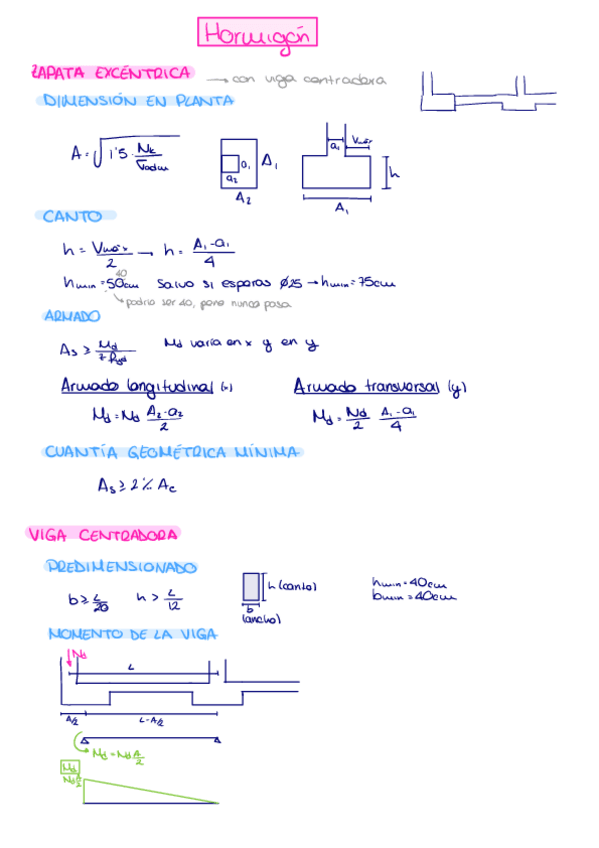 Hormigón
ZAPATA EXCÉNTRICA → con viga centradora
DIMENSIÓN EN PLANTA
A = √1'5 · Nk / σadm
a1 A1
a2
A2
a1 Vmáx
h
A1
CANTO
h = Vmáx / 2 → h = A1 - a1 / 4
40
hmin = 50cm Salvo si esperas Ø25 → hmin = 75cm
podría ser 40, pero nunca pasa
ARMADO
As ≥ Md / 7 fyd Md varía en x y en y
Armado longitudinal (x) Armado transversal (y)
Md = Nd A2 - a2 / 2 Md = Nd / 2 A1 - a1 / 4
CUANTÍA GEOMÉTRICA MÍNIMA
As ≥ 2‰ Ac
VIGA CENTRADORA
PREDIMENSIONADO
b ≥ L / 20 h > L / 12 h (canto) hmin = 40cm
b bmin = 40cm
(ancho)
MOMENTO DE LA VIGA
Nd
L
A/2 L - A/2
Md = Nd A / 2
Md
Nd A / 2